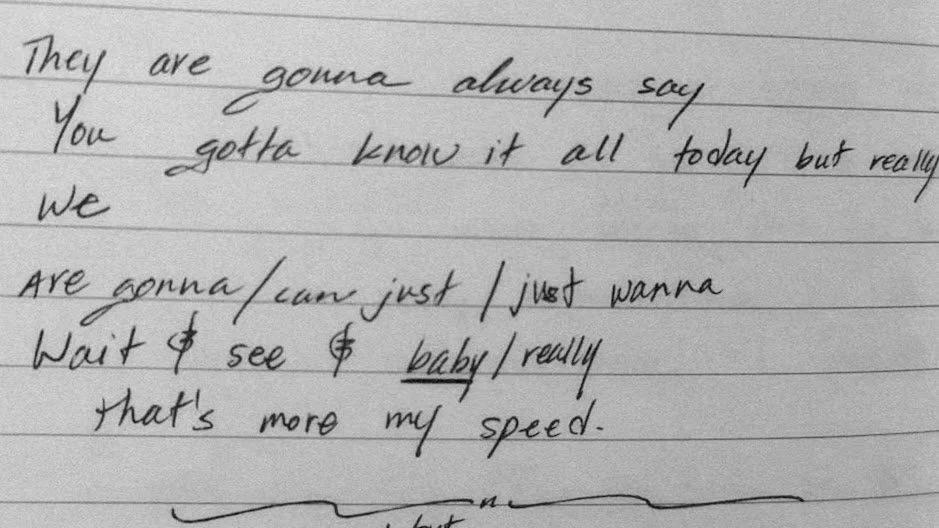 They are gonna always say
You gotta know it all today but really
We
Are gonna/can just / just wanna
Wait & see & baby/really
that's more my speed.
but